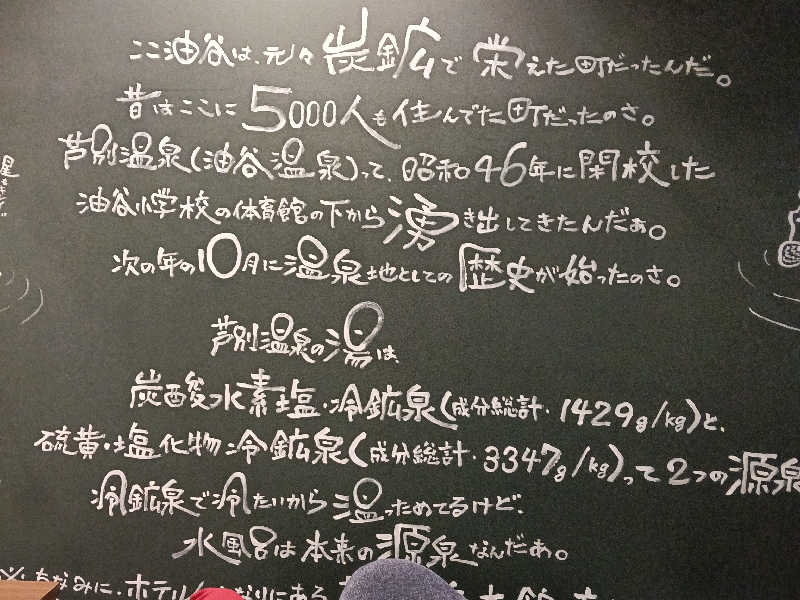 ここ油谷は、元々炭鉱で栄えた町だったんだ。
昔はここに5000人も住んでた町だったのさ。
芦別温泉(油谷温泉)って、昭和46年に閉校した
油谷小学校の体育館の下から湧き出してきたんだぁ。
次の年の10月に温泉地としての歴史が始ったのさ。
芦別温泉の湯は、
炭酸水素塩・冷鉱泉(成分総計・1429g/kg)と、
硫黄・塩化物冷鉱泉(成分総計・3347g/kg)って2つの源泉
冷鉱泉で冷たいから温っためてるけど、
水風呂は本来の源泉なんだあ。
※ちなみに、ホテル